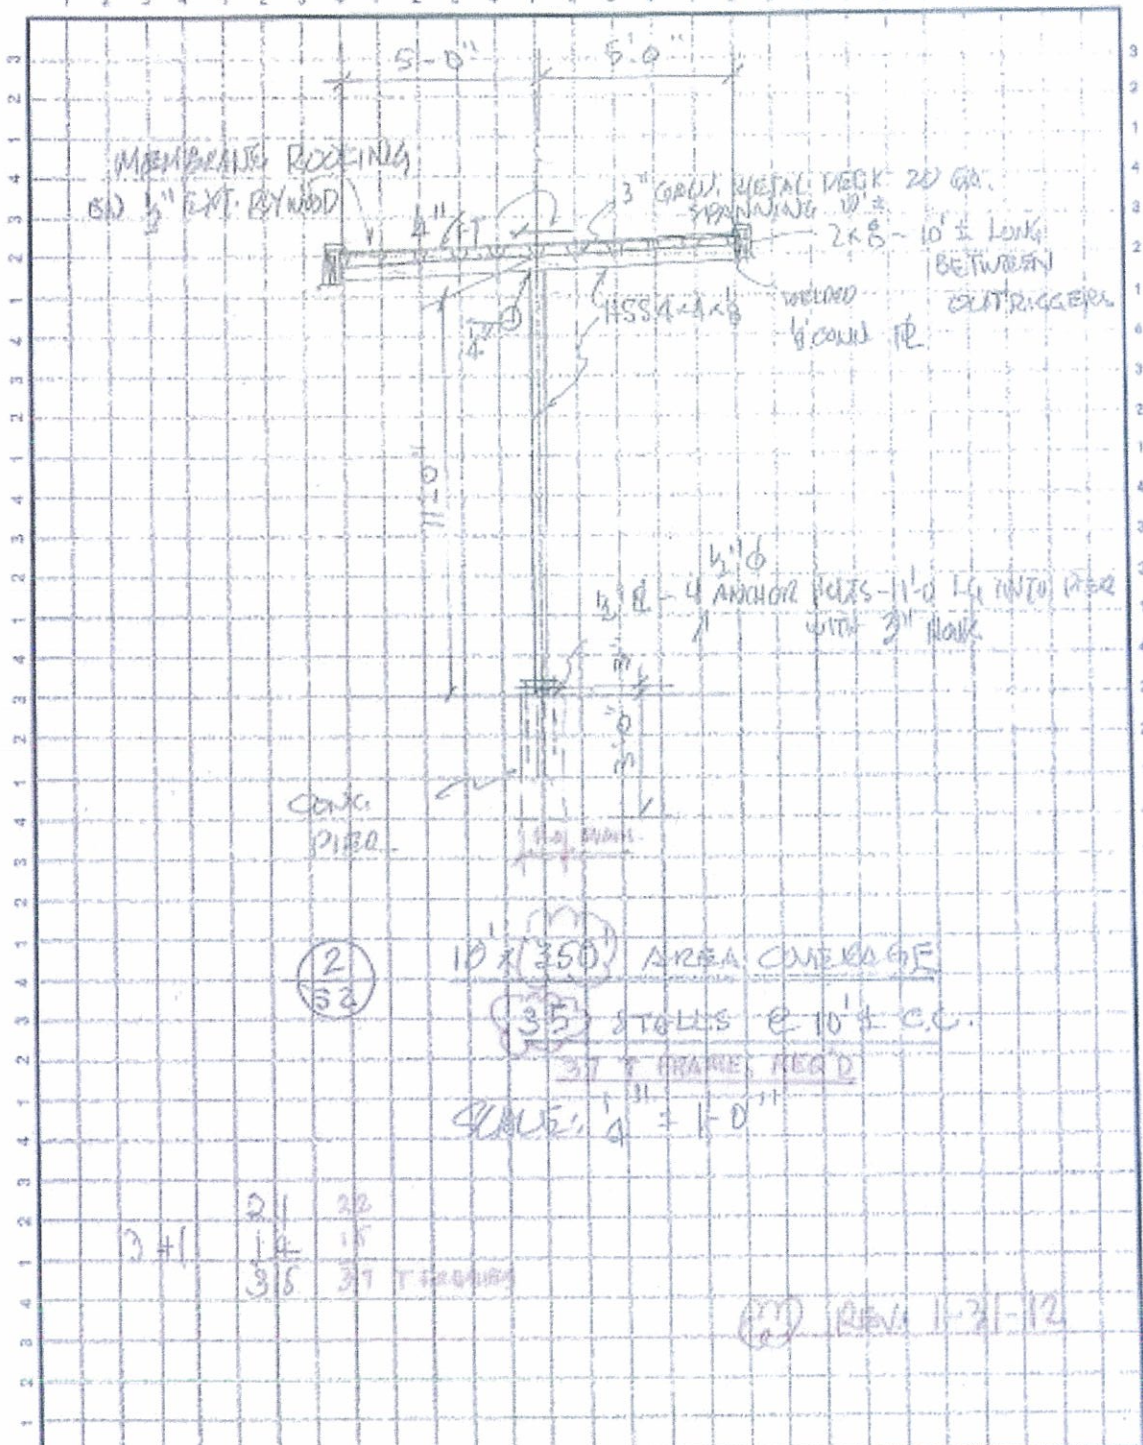 5'-0" 5'-0"
MEMBRANE ROOFING
ON ½" EXT. PLYWOOD
¼"/FT
3" GALV. METAL DECK 20 GA.
SPANNING 10'±
2x8 - 10'± LONG
BETWEEN
OUTRIGGERS
WELDED
CONN PL
HSS 4x4x
11'-0"
½" ϕ
4 ANCHOR BOLTS - 1'-0 LG INTO PIER
WITH 3" HOOK
3'-0"
CONC.
PIER
2
10' x 350' AREA COVERAGE
35 STALLS @ 10'± C.C.
37 T FRAMES REQ'D
SCALE: ¼" = 1'-0"
21 22
3+1 14 15
35 37 T FRAMES
REV. 1-31-12